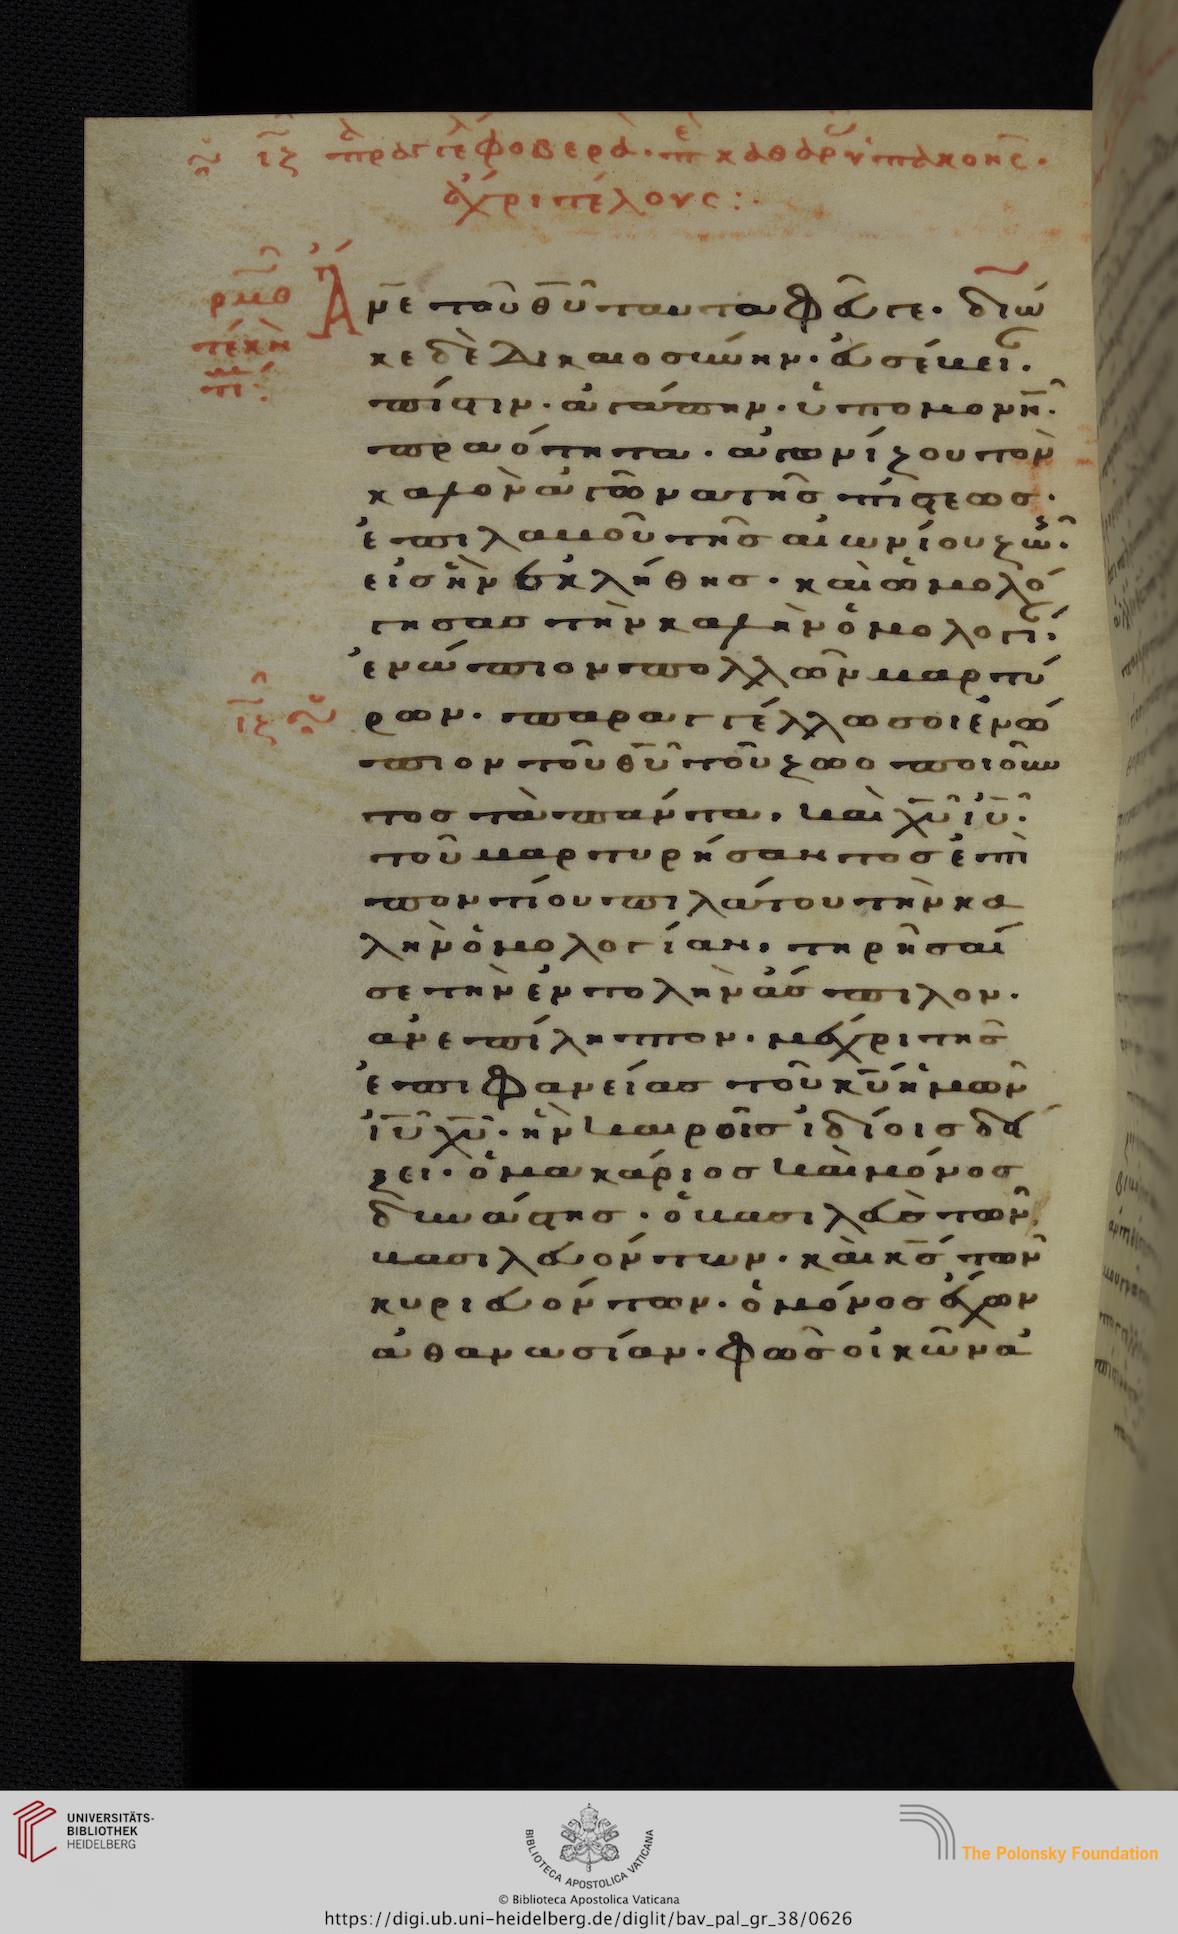 ιζ παραγγε φοβερὰ. πε καθαρ ὑπακοης.
ἄχρι τέλους:.
Ἄνε τοῦ θ̅υ̅ ταῦτα φεῦγε. δίω
κε δὲ δικαιοσύνην. εὐσέβει.
πίστιν. ἀγάπην. ὑπομονή.
πραότητα. ἀγωνίζου τὸν
καλὸν ἀγῶνα τῆς πίστεως.
ἐπιλαβοῦ τῆς αἰωνίου ζω.
εἰς ἣν ἐκλήθης. καὶ ὡμολό
γησας τὴν καλὴν ὁμολογι.
ἐνώπιον πολλῶν μαρτύ
ρων. παραγγέλλω σοι ἐνώ
πιον τοῦ θ̅υ̅ τοῦ ζωοποιοῦν
τος τὰ πάντα. καὶ χ̅υ̅ ι̅υ̅.
τοῦ μαρτυρήσαντος ἐπὶ
ποντίου πιλάτου τὴν κα
λὴν ὁμολογίαν. τηρῆσαί
σε τὴν ἐντολὴν ἄσπιλον.
ἀνεπίληπτον. μέχρι τῆς
ἐπιφανείας τοῦ κ̅υ̅ ἡμῶν
ι̅υ̅ χ̅υ̅. ἣν καιροῖς ἰδίοις δεί
ξει. ὁ μακάριος καὶ μόνος
δυνάστης. ὁ βασιλεὺς τῶν
βασιλευόντων. καὶ κ̅ς̅ τῶν
κυριευόντων. ὁ μόνος ἔχων
ἀθανασίαν. φῶς οἰκῶν ἀ
ρμθ
ιζ
UNIVERSITÄTS-
BIBLIOTHEK
HEIDELBERG
BIBLIOTECA APOSTOLICA VATICANA
© Biblioteca Apostolica Vaticana
The Polonsky Foundation
https://digi.ub.uni-heidelberg.de/diglit/bav_pal_gr_38/0626